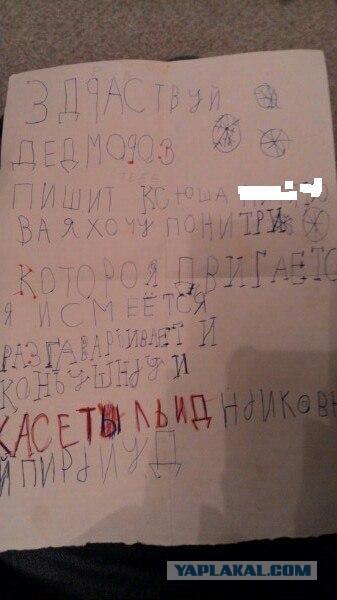 ЗДРАСТВУЙ
ДЕДМОРОЗ
ТЕБЕ
ПИШИТ КСЮША
ВА Я ХОЧУ ПОНИ ТРИ
КОТОРОЯ ДВИГАЕТС
Я И СМЕЁТСЯ
РАЗГАВАРЫВАЕТ И
КОНЬУШНУ И
КАСЕТЫ ЛЬИД НИКОВЫ
Й ПИРИУД
YAPLAKAL.COM